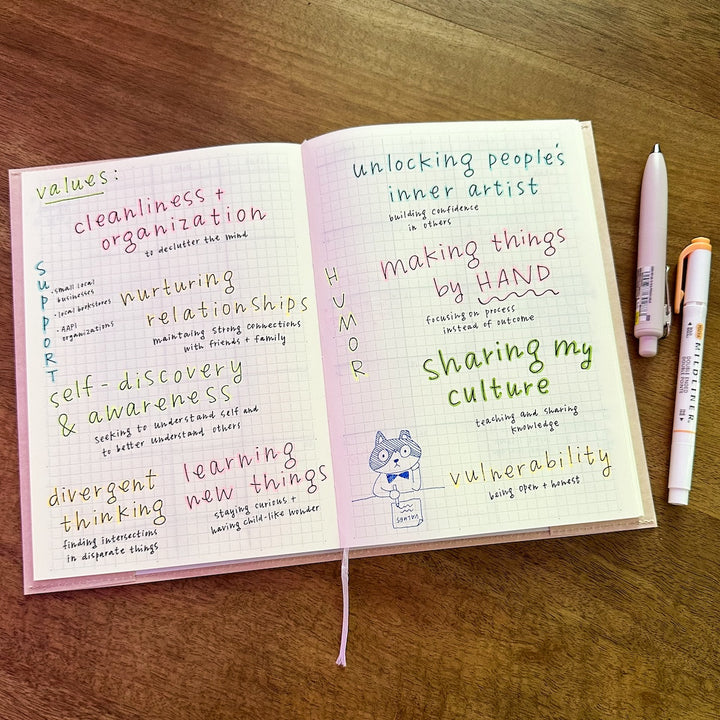 values:
cleanliness +
organization
to declutter the mind
SUPPORT
• small local
businesses
• local bookstores
• AAPI
organizations
nurturing
relationships
maintaing strong connections
with friends + family
self-discovery
& awareness
seeking to understand self and
to better understand others
divergent
thinking
finding intersections
in disparate things
learning
new things
staying curious +
having child-like wonder
unlocking people's
inner artist
building confidence
in others
HUMOR
making things
by HAND
focusing on process
instead of outcome
sharing my
culture
teaching and sharing
knowledge
VALUES
vulnerability
being open + honest
MILDLINER
DOUBLE ENDED
DOUBLE POINTE